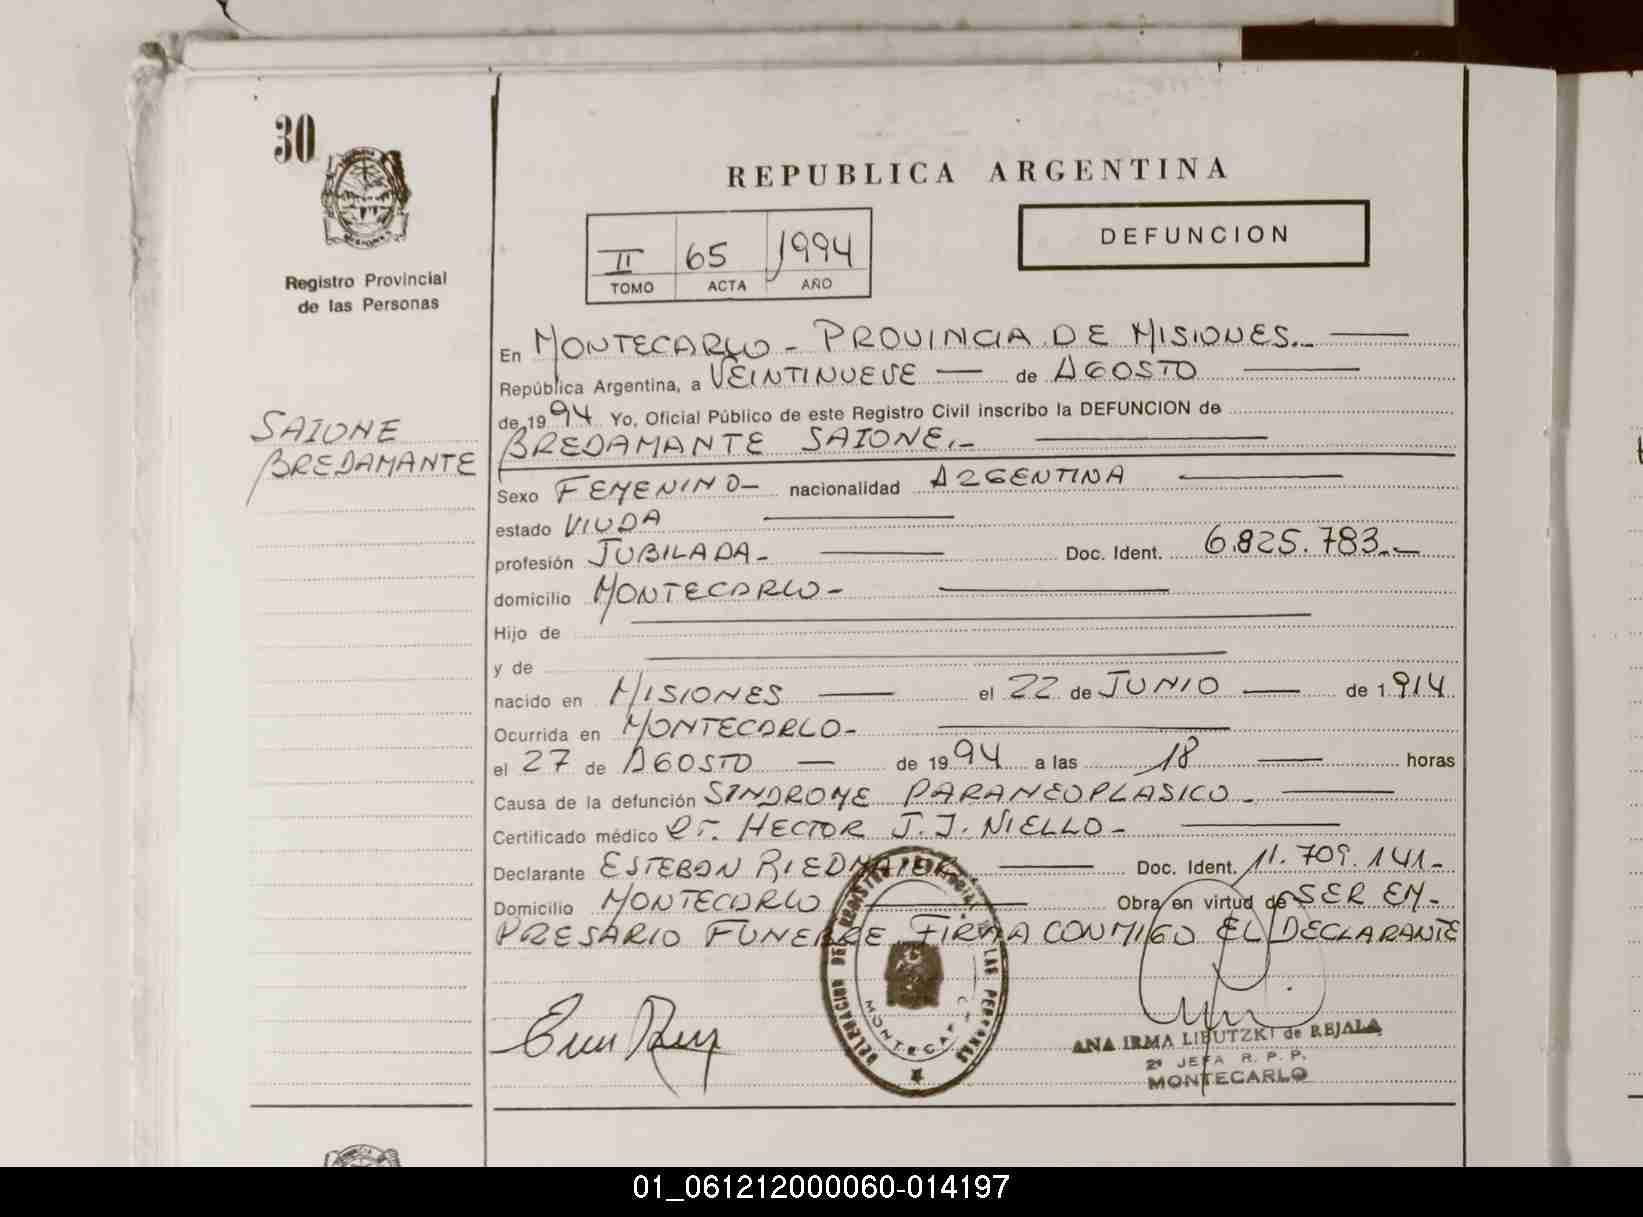 30
Registro Provincial
de las Personas
REPUBLICA ARGENTINA
II 65 1994
TOMO ACTA AÑO
DEFUNCION
SAIONE
BREDAMANTE
En MONTECARLO - PROVINCIA DE MISIONES.-
República Argentina, a VEINTINUEVE — de AGOSTO
de 1994 Yo, Oficial Público de este Registro Civil inscribo la DEFUNCION de
BREDAMANTE SAIONE.-
Sexo FEMENINO- nacionalidad ARGENTINA
estado VIUDA
profesión JUBILADA- Doc. Ident. 6.825.783.-
domicilio MONTECARLO-
Hijo de
y de
nacido en MISIONES — el 22 de JUNIO — de 1.914
Ocurrida en MONTECARLO-
el 27 de AGOSTO — de 1994 a las 18 — horas
Causa de la defunción SINDROME PARANEOPLASICO-
Certificado médico Dr. HECTOR J.J. NIELLO-
Declarante ESTEBAN RIEDMAIER Doc. Ident. 11.709.141-
Domicilio MONTECARLO Obra en virtud de SER EM-
PRESARIO FUNEBRE FIRMA CONMIGO EL DECLARANTE
DELEGACION DEL REGISTRO PROVINCIAL DE LAS PERSONAS
MONTECARLO
ANA IRMA LIBUTZKI de REJALA
2ª JEFA R. P. P.
MONTECARLO
01_061212000060-014197